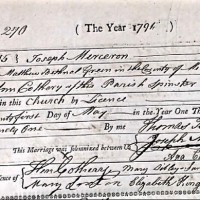 270 ( The Year 1791
5 } Joseph Merceron
Matthew Bethnal Green in the County of
Ann Cothery of this Parish Spinster
in this Church by Licence
first Day of May in the Year One Th
nety One By me Thomas
This Marriage was solemnized between Us { Joseph
Ann
ence of { Mary Ridley
Mary Elizabeth King